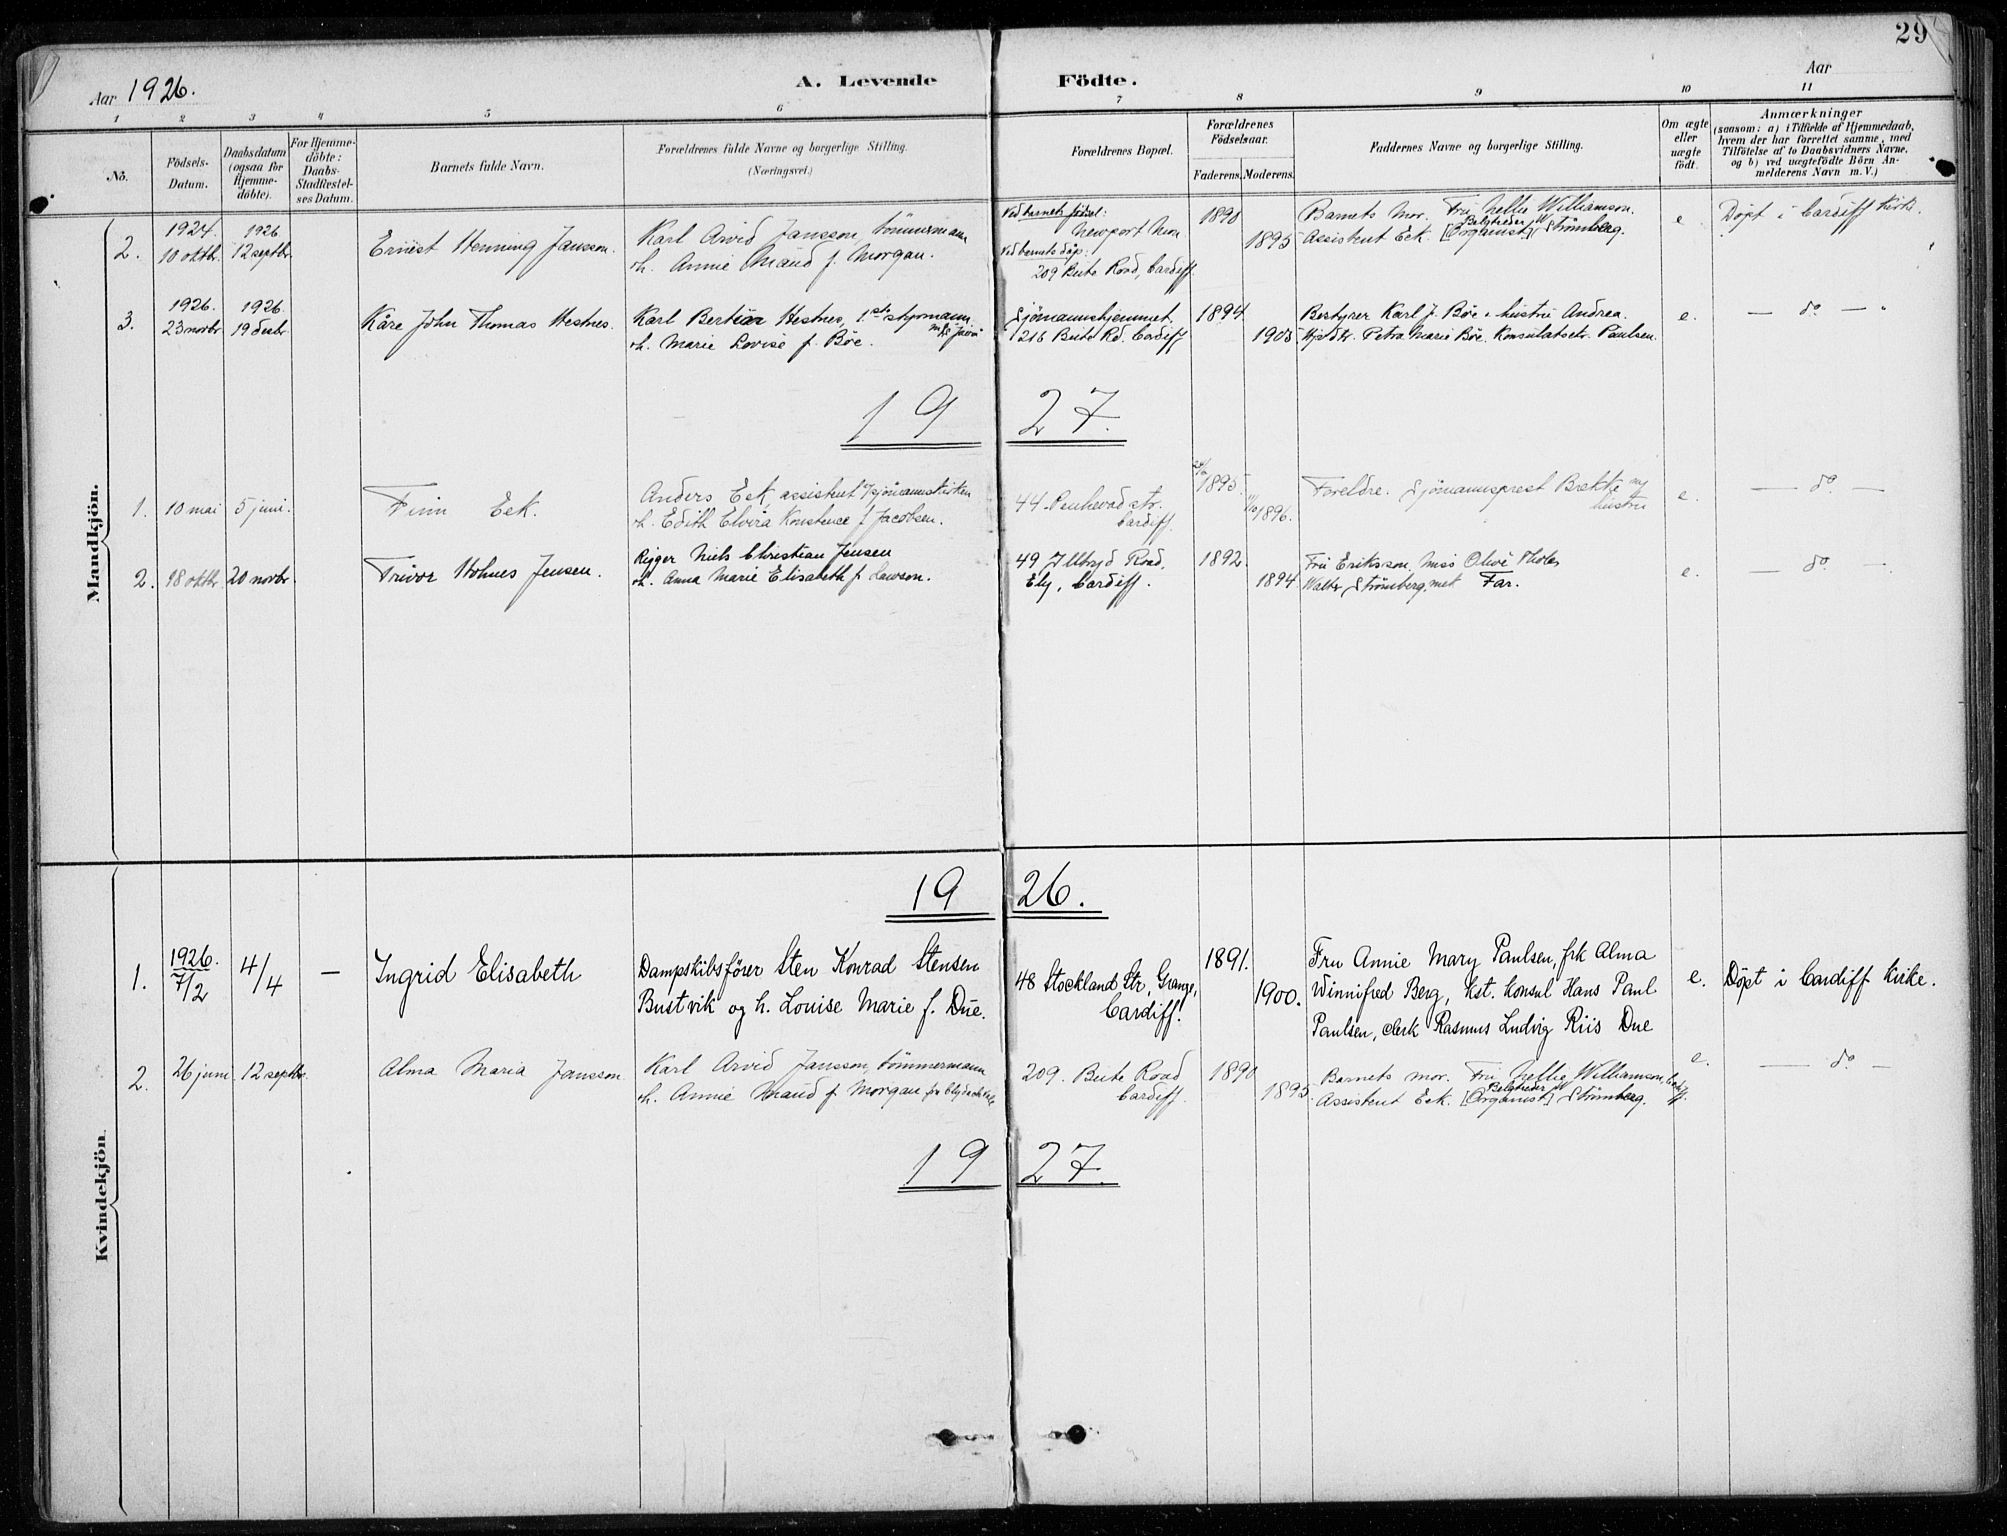 29
Aar 1926.
A. Levende Födte.
Aar
1 2 3 4 5 6 7 8 9 10 11
No.
Födsels-
Datum.
Daabsdatum
(ogsaa for
Hjemme-
döbte).
For Hjemme-
döbte:
Daabs-
Stadfæstel-
ses Datum.
Barnets fulde Navn.
Forældrenes fulde Navne og borgerlige Stilling.
(Næringsvei.)
Forældrenes Bopæl.
Forældrenes
Födselsaar.
Faderens. Moderens.
Faddernes Navne og borgerlige Stilling.
Om ægte
eller
uægte
födt.
Anmærkninger
(saasom: a) i Tilfælde af Hjemmedaab,
hvem der har forrettet samme, med
Tilföielse af to Daabsvidners Navne,
og b) ved uægtefödte Börn An-
melderens Navn m. V.)
Mandkjön.
2.
1924.
10 oktbr.
1926
12 septbr.
Ernest Henning Jansson.
Karl Arvid Jansson, tömmermann
oh. Annie Maud f. Morgan.
Ved barnets födsel:
Newport Mon
Ved barnets dåp:
209 Bute Road, Cardiff
1890
1895
Barnets Mor. Fru Nellie Williamson.
Assistent Eek. [Organist] Strömberg.
e
Döpt i Cardiff Kirke.
3.
1926.
23 novbr.
1926.
19 desbr.
Kåre John Thomas Hestnes.
Karl Bertin Hestnes, 1ste styrmann
oh. Marie Lovise f. Böe.
Sjömannshjemmet,
216 Bute Rd. Cardiff
1894
1905
Bestyrer Karl J. Böe, hustru Andrea.
Petra Marie Böe. Konsulatsekr. Paulsen.
e.
— do —
19 27.
1.
10 mai
5 juni.
Finn Eek.
Anders Eek assistent v/sjömannskirken
oh. Edith Elvira Konstance f. Jacobsen.
44 Penhevad str.
Cardiff.
1895.
1896.
Foreldre. Sjömannsprest Brekke og
hustru
e.
— do —
2.
18 oktbr.
20 novbr.
Trivor Holmes Jensen.
Rigger Niels Christian Jensen
oh. Anna Marie Elisabeth f. Lawson.
49 Illtyd Road,
Ely, Cardiff.
1892.
1894
Fru Eriksson, Miss Olive Tholes
Walter Strömberg, Far.
e.
— do —
Kvindekjön.
19 26.
1.
1926.
7/2
4/4
—
Ingrid Elisabeth
Dampskibsförer Sten Konrad Stensen
Bustvik og h. Louise Marie f. Due.
48 Stockland Str, Grange,
Cardiff.
1891.
1900.
Fru Annie Mary Paulsen, frk Alma
Winnifred Berg, kst. konsul Hans Paul
Paulsen, clerk Rasmus Ludvig Riis Due
e.
Döpt i Cardiff kirke.
2.
26 juni
12 septbr.
Alma Maria Jansson
Karl Arvid Jansson, tömmermann
oh. Annie Maud f. Morgan
209. Bute Road
Cardiff.
1890
1895
Barnets mor. Fru Nellie Williamson, Cardiff.
Assistent Eek. [Organist] Strömberg.
e.
— do —
19 27.